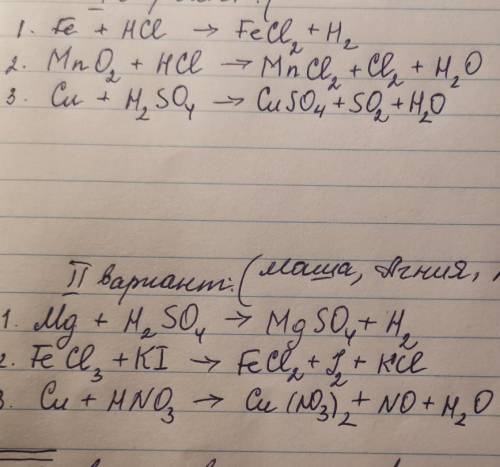 1. Fe + HCl → FeCl₂ + H₂
2. MnO₂ + HCl → MnCl₂ + Cl₂ + H₂O
3. Cu + H₂SO₄ → CuSO₄ + SO₂ + H₂O
II вариант: (Маша, Агния,
1. Mg + H₂SO₄ → MgSO₄ + H₂
2. FeCl₃ + KI → FeCl₂ + J₂ + KCl
3. Cu + HNO₃ → Cu(NO₃)₂ + NO + H₂O